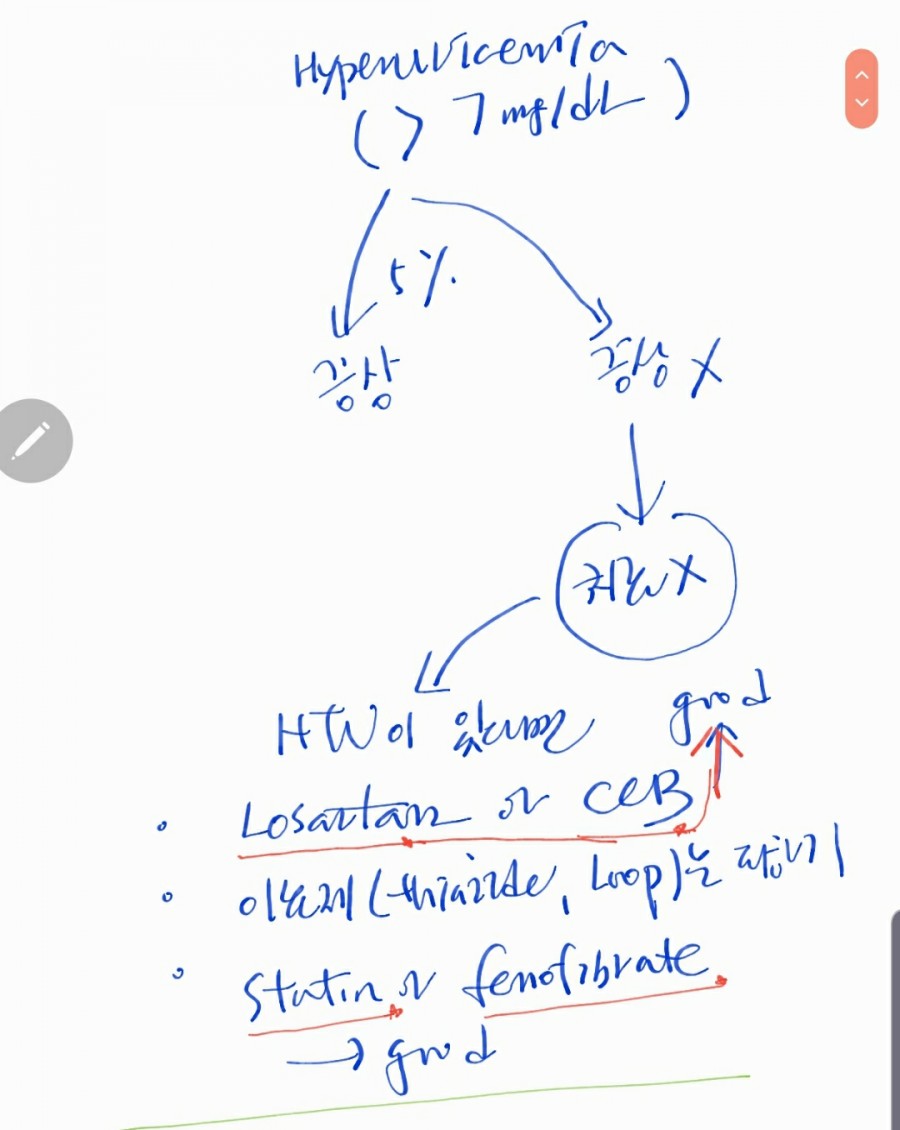 Hyperuricemia
(> 7 mg/dL)
5%
증상
증상 X
치료 X
HTN이 있다면
good
• Losartan or CCB
• 이뇨제 (thiazide, Loop)는 피하기
• Statin or fenofibrate
→ good